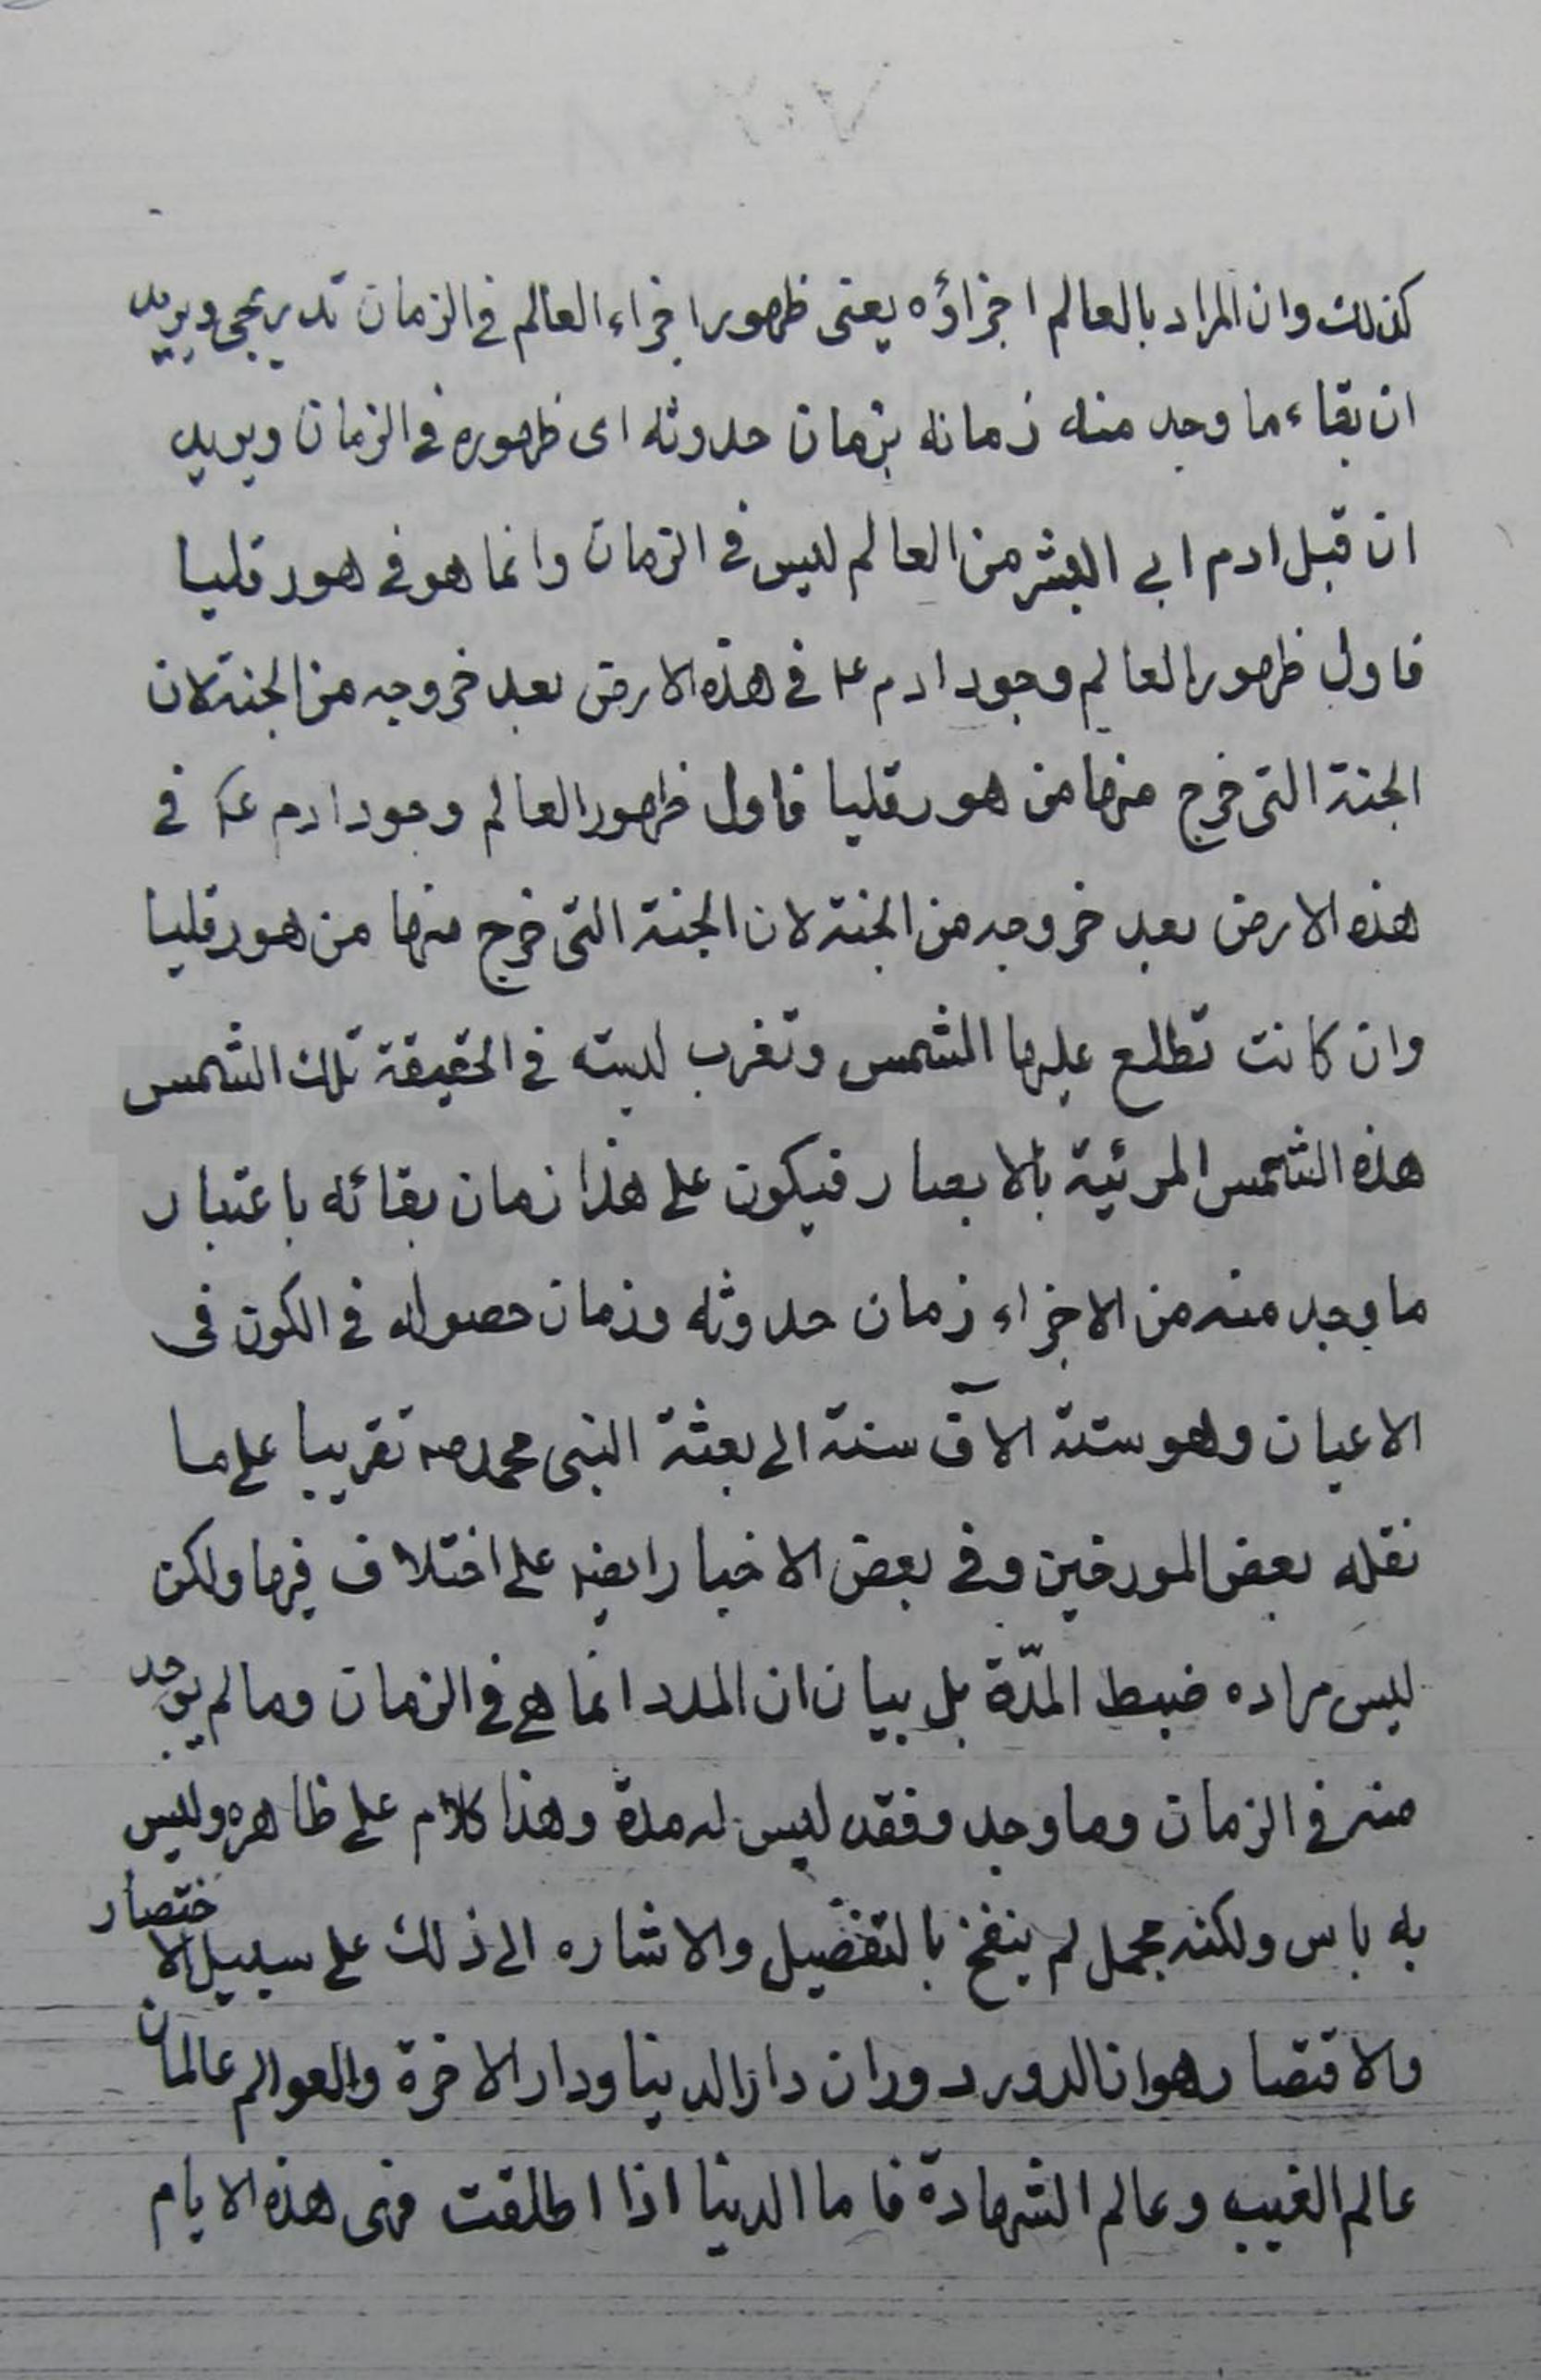 كذلك وان المراد بالعالم اجزاؤه يعنى ظهور اجزاء العالم فى الزمان تدريجى ويريد
ان بقاء ما وجد منه زمانه بزمان حدوثه اى ظهوره فى الزمان ويريد
ان قبل ادم ابى البشر من العالم ليس فى الزمان وانما هو فى هورقليا
فاول ظهور العالم وجود ادم ع فى هذه الارض بعد خروجه من الجنة لان
الجنة التى خرج منها من هورقليا فاول ظهور العالم وجود ادم ع فى
هذه الارض بعد خروجه من الجنة لان الجنة التى خرج منها من هورقليا
وان كانت تطلع عليها الشمس وتغرب ليسة فى الحقيقة تلك الشمس
هذه الشمس المرئية بالابصار فيكون على هذا زمان بقائه باعتبار
ما وجد منه من الاجزاء زمان حدوثه وزمان حصوله فى الكون فى
الاعيان وهو ستة الآف سنة الى بعثة النبى محمد ص تقريبا على ما
نقله بعض المورخين وفى بعض الاخبار ايضا على اختلاف فيها ولكن
ليس مراده ضبط المدّة بل بيان ان المدد انما هى فى الزمان وما لم يوجد
منه فى الزمان وما وجد وفقد ليس له مدة وهذا كلام على ظاهره وليس
به باس ولكنه مجمل لم ينفخ بالتفضيل والاشاره الى ذلك على سبيل الاختصار
والاقتصار هو ان الدور دوران دار الدنيا ودار الاخرة والعوالم عالمان
عالم الغيب وعالم الشهادة فاما الدنيا اذا اطلقت فهى هذه الايام